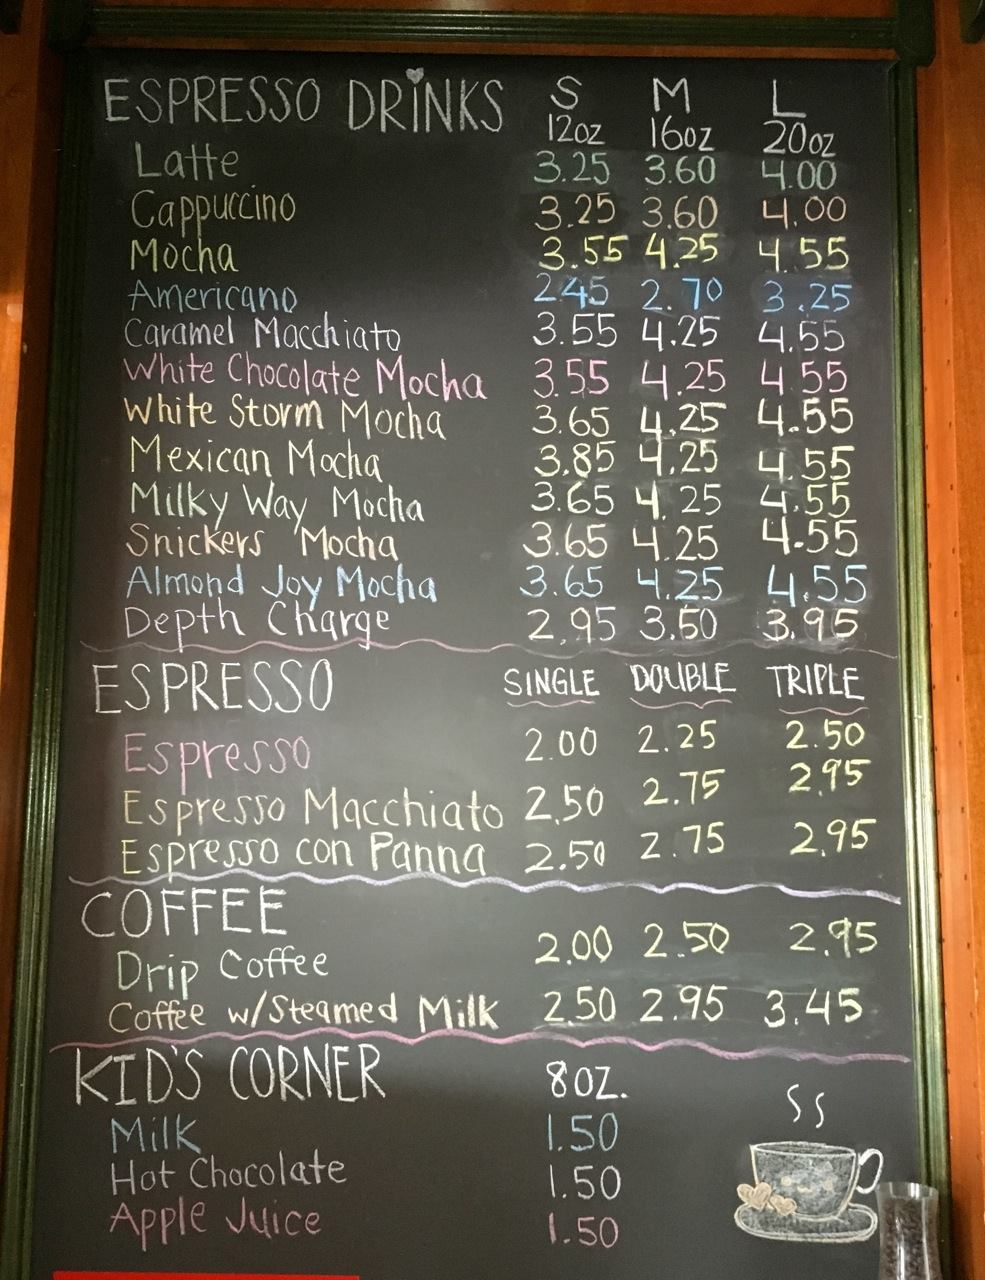 ESPRESSO DRINKS S M L
12oz 16oz 20oz
Latte 3.25 3.60 4.00
Cappuccino 3.25 3.60 4.00
Mocha 3.55 4.25 4.55
Americano 2.45 2.70 3.25
Caramel Macchiato 3.55 4.25 4.55
White Chocolate Mocha 3.55 4.25 4.55
White Storm Mocha 3.65 4.25 4.55
Mexican Mocha 3.85 4.25 4.55
Milky Way Mocha 3.65 4.25 4.55
Snickers Mocha 3.65 4.25 4.55
Almond Joy Mocha 3.65 4.25 4.55
Depth Charge 2.95 3.50 3.95
ESPRESSO SINGLE DOUBLE TRIPLE
Espresso 2.00 2.25 2.50
Espresso Macchiato 2.50 2.75 2.95
Espresso con Panna 2.50 2.75 2.95
COFFEE
Drip Coffee 2.00 2.50 2.95
Coffee w/Steamed Milk 2.50 2.95 3.45
KID'S CORNER 8OZ.
Milk 1.50
Hot Chocolate 1.50
Apple Juice 1.50